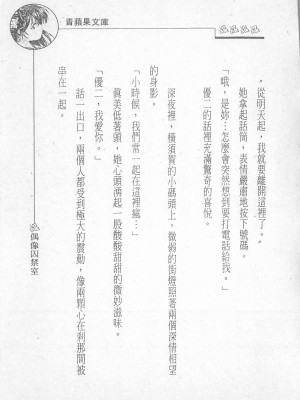 青蘋果文庫
"從明天起,我就要離開這裡了。"
她拿起話筒,表情嚴肅地按下號碼。
「哦,是妳…怎麼會突然想到要打電話給我。」
優二的話裡充滿驚奇的喜悅。
深夜裡,橫須賀的小碼頭上,微弱的街燈照著兩個深情相望
的身影。
「小時候,我們常一起在這裡瘋…」
真美低著頭,她心頭湧起一股酸酸甜甜的微妙滋味。
「優二,我愛你。」
話一出口,兩個人都受到極大的震動,像兩顆心在剎那間被
串在一起。
偶像囚禁室